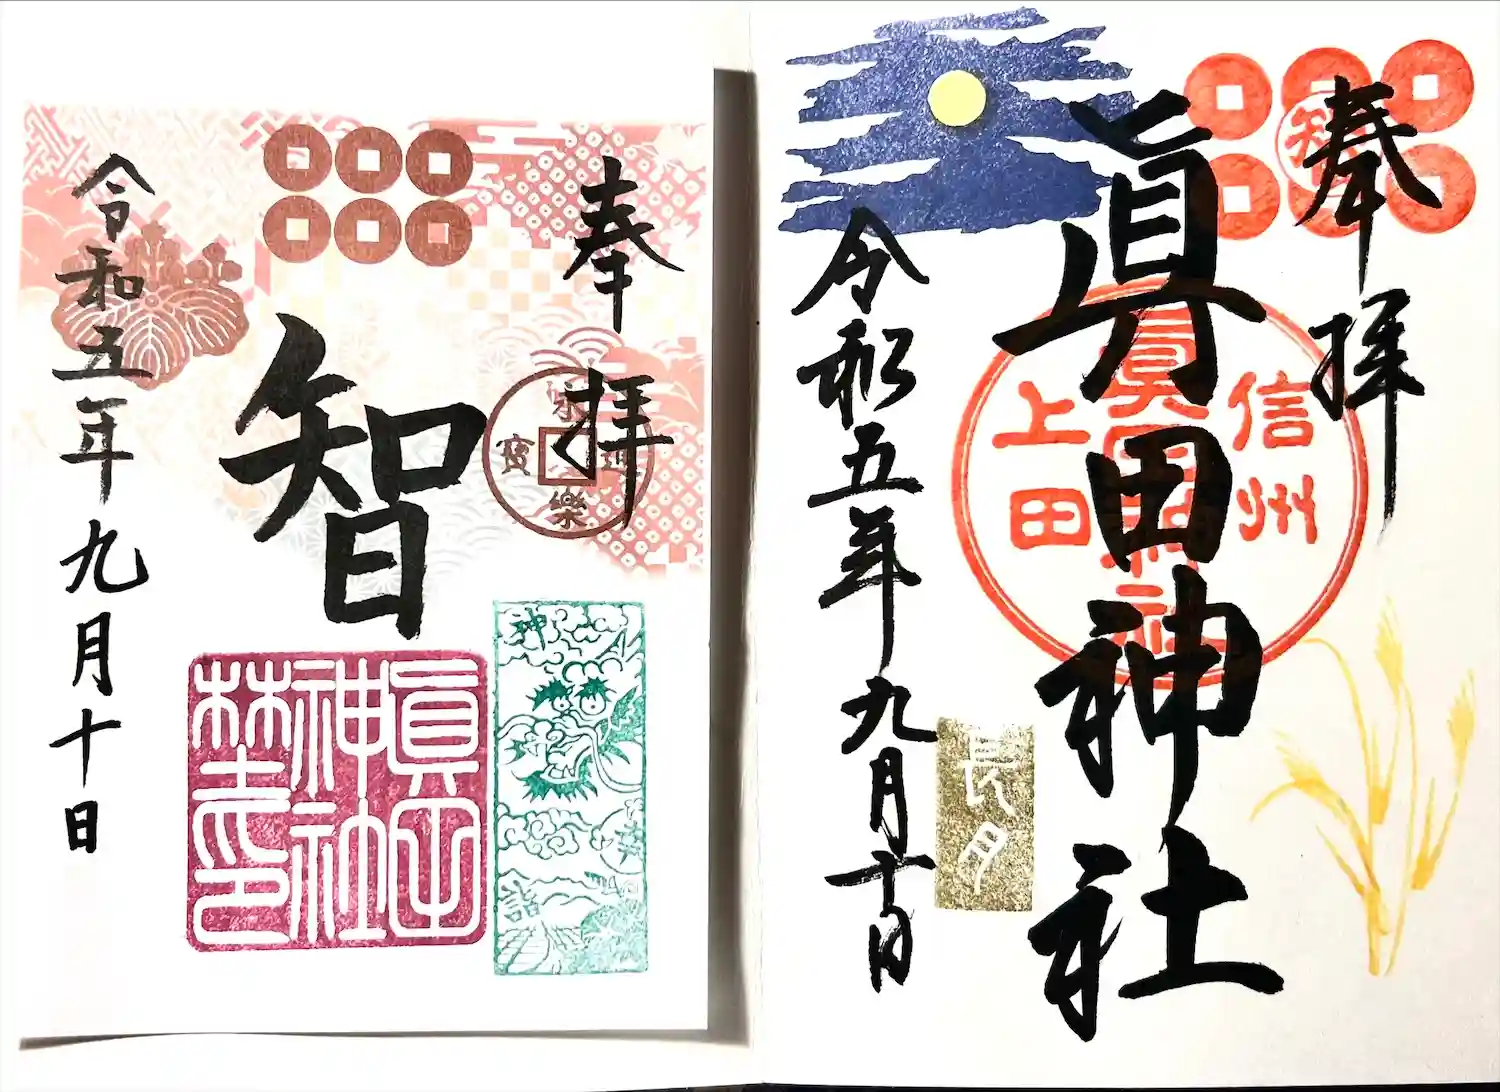 奉拝
智
眞田神社
信州
眞田神社
上田
長月
令和五年九月十日
奉拝
永樂通寳
智
眞田
神社
神
詣
令和五年九月十日